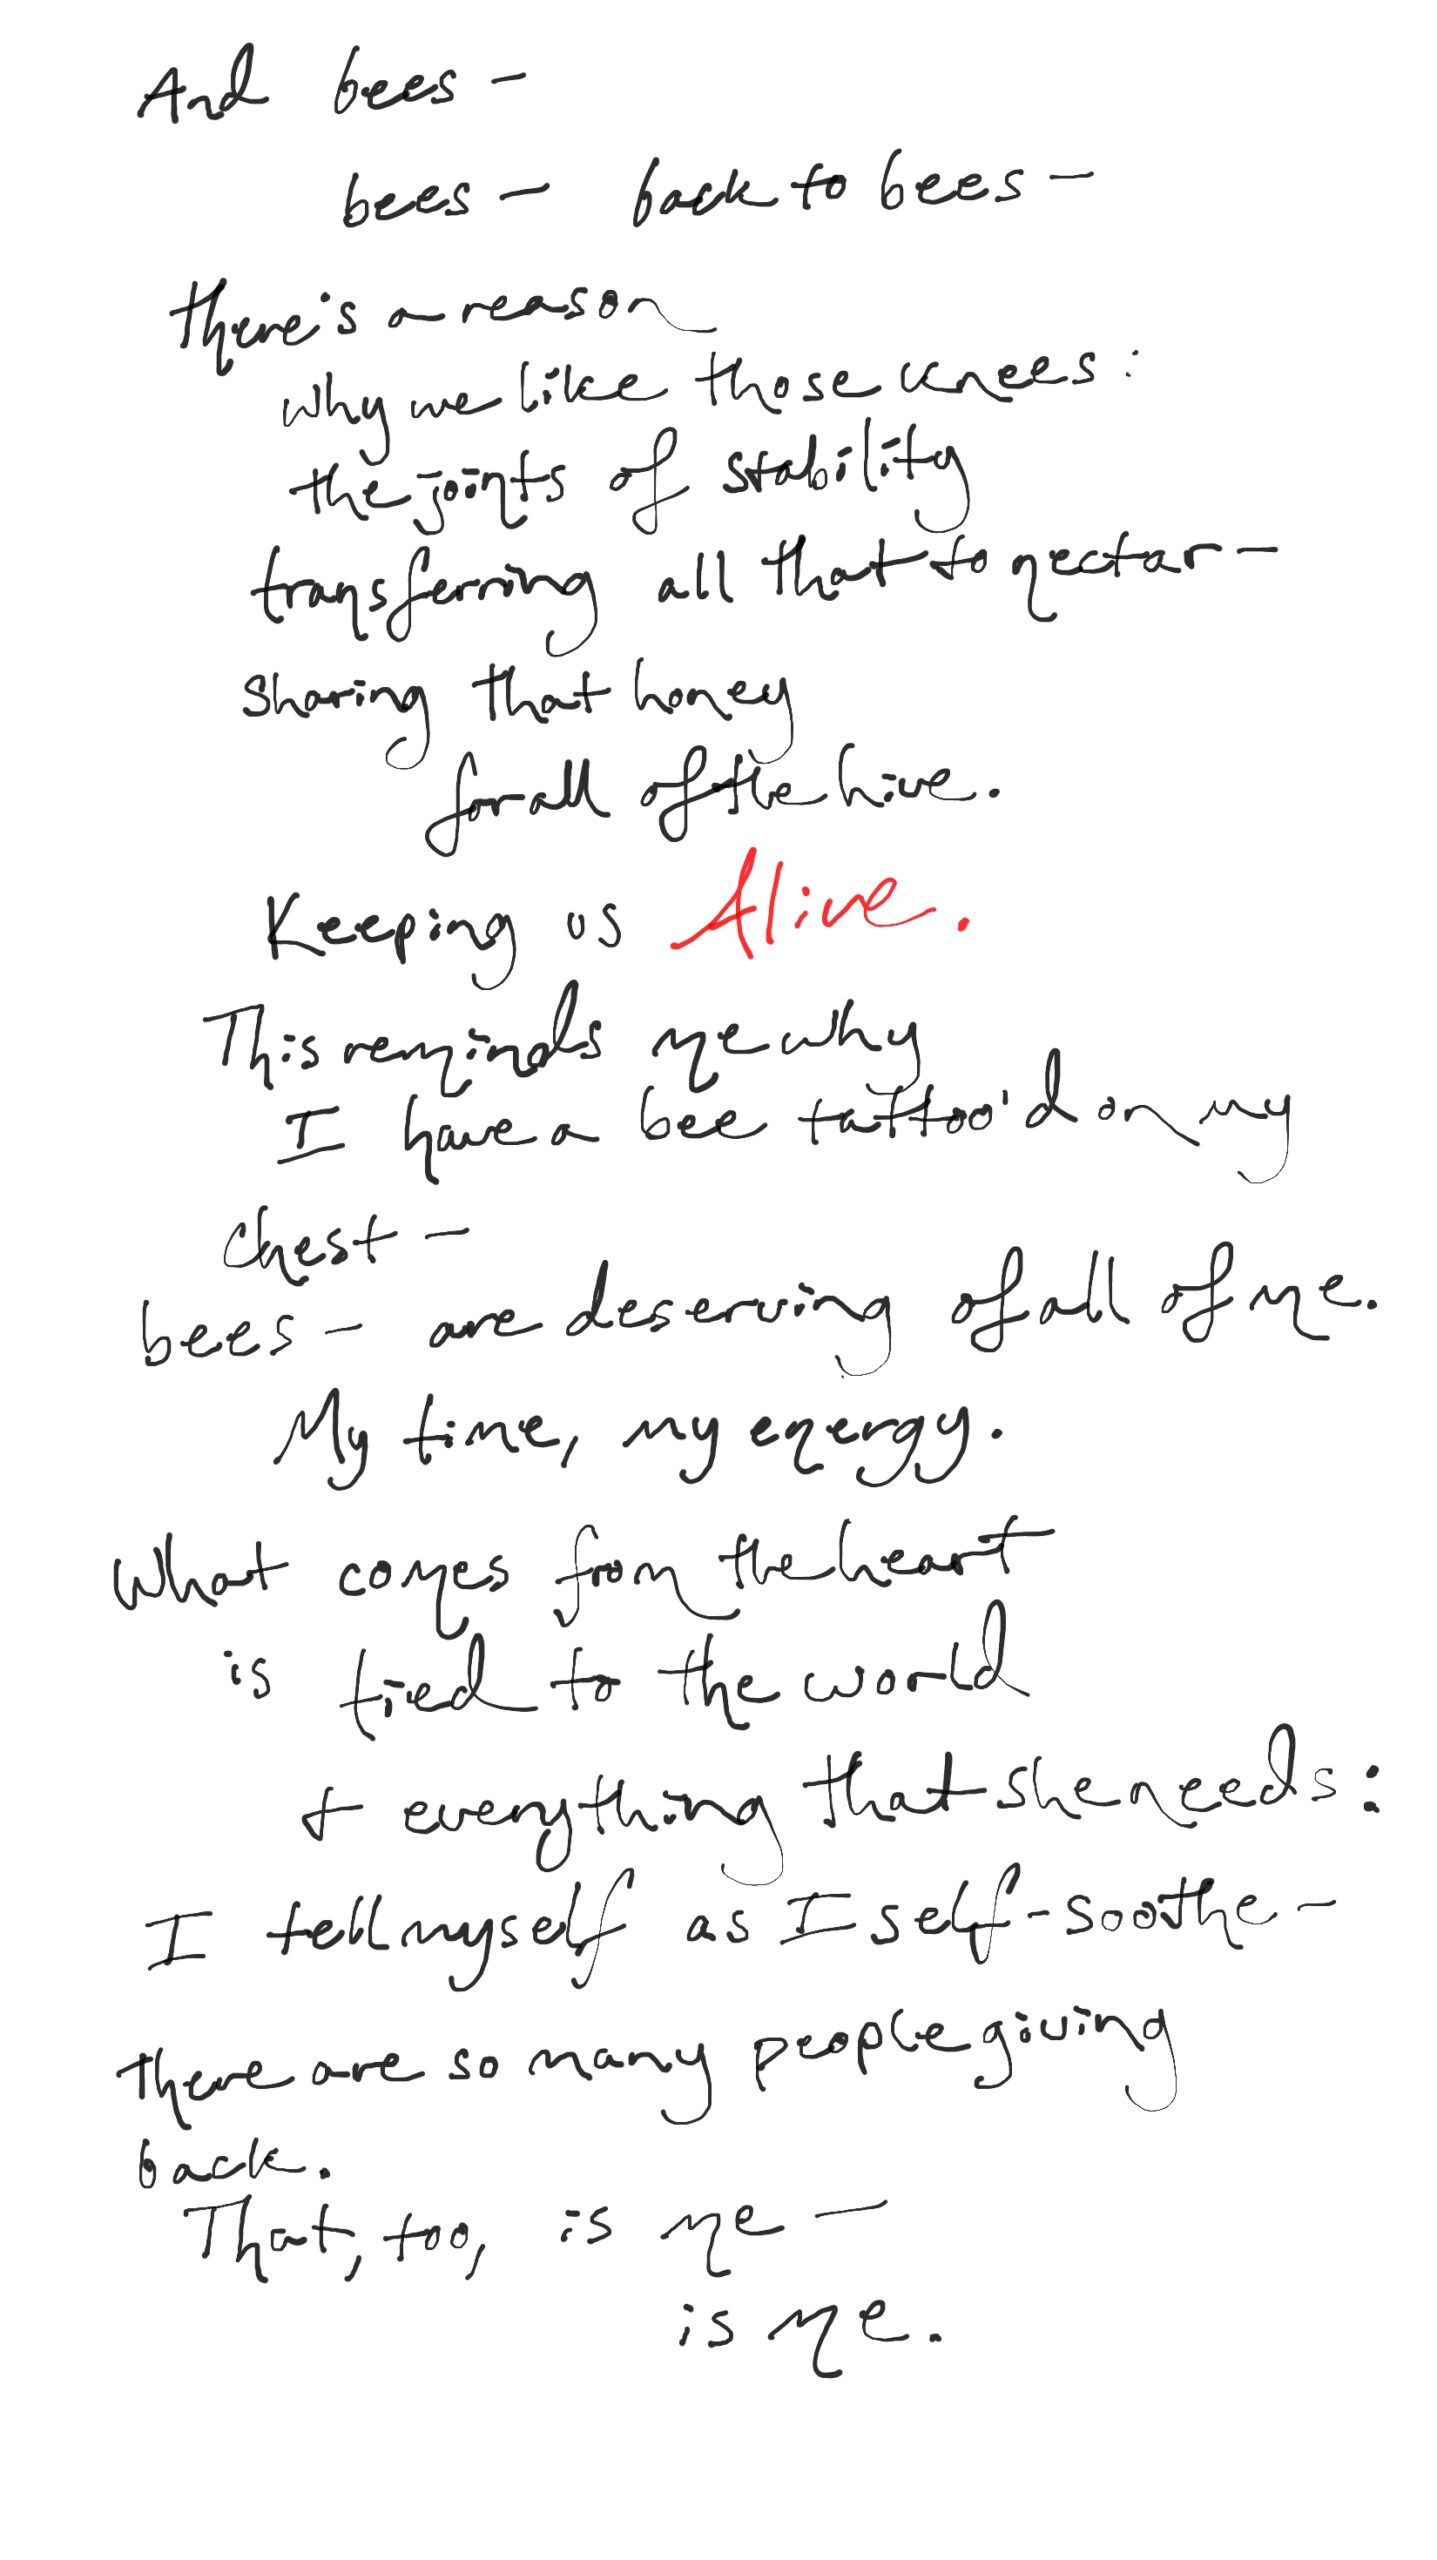 And bees -
bees - back to bees -
there's a reason
why we like those knees:
the joints of stability
transferring all that to nectar -
sharing that honey
for all of the hive.
Keeping us Alive.
This reminds me why
I have a bee tattoo'd on my
chest -
bees - are deserving of all of me.
My time, my energy.
What comes from the heart
is tied to the world
+ everything that she needs:
I tell myself as I self-soothe -
there are so many people giving
back.
That, too, is me -
is me.